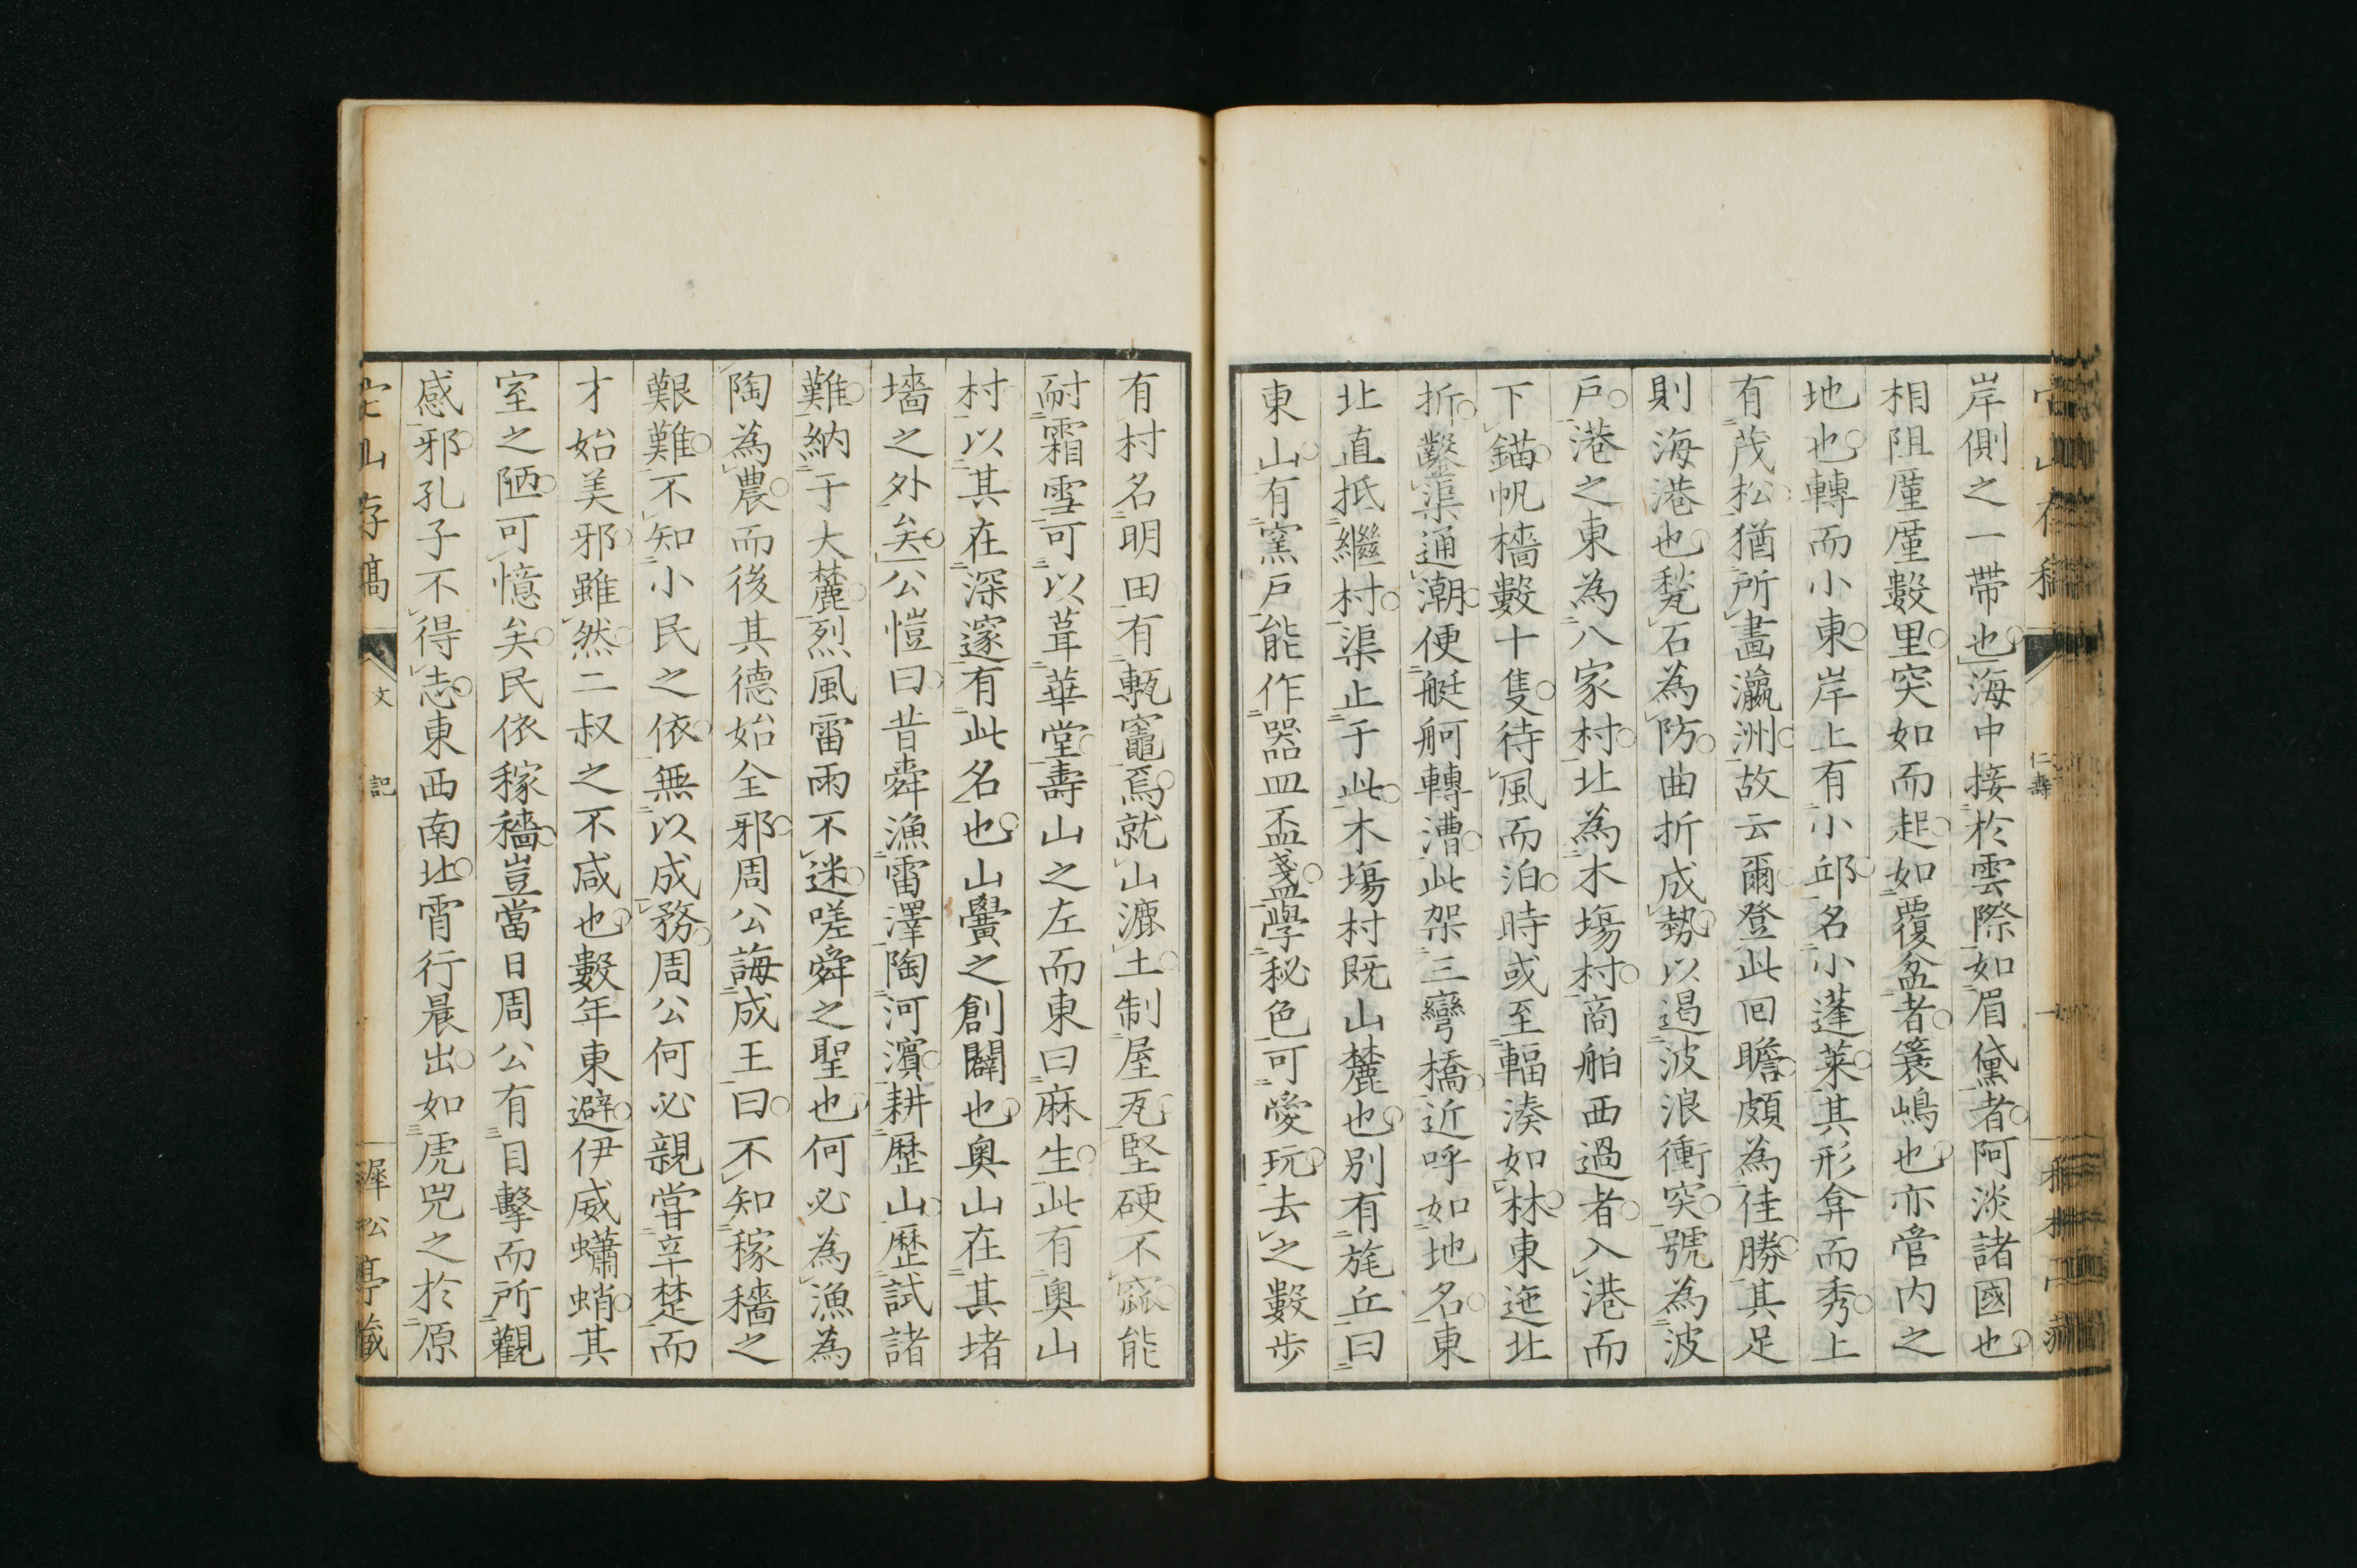 岸側之一帶也海中接於雲際如眉黛者阿淡諸國也
相阻廑廑數里突如而起如覆盆者簑嶋也亦管内之
地也轉而小東岸上有小邱名小蓬萊其形弇而秀上
有茂松猶所畫瀛洲故云爾登此回瞻頗為佳勝其足
則海港也甃石為防曲折成勢以遏波浪衝突號為波
戶港之東為八家村北為木場村商舶西過者入港而
下錨帆檣數十隻待風而泊時或至輻湊如林東迤北
折鑿渠通潮便艇舸轉漕此架三彎橋近呼如地名東
北直抵繼村渠止于此木塲村既山麓也別有旄丘曰
東山有窯戶能作器皿盃盞學秘色可愛玩去之數步
有村名明田有甎竈焉就山漉土制屋瓦堅硬不窳能
耐霜雪可以葺華堂壽山之左而東曰麻生此有奧山
村以其在深邃有此名也山黌之創闢也奧山在其堵
墻之外矣公愷曰昔舜漁雷澤陶河濱耕歷山歷試諸
難納于大麓烈風雷雨不迷嗟舜之聖也何必為漁為
陶為農而後其德始全邪周公誨成王曰不知稼穡之
艱難不知小民之依無以成務周公何必親甞辛楚而
才始美邪雖然二叔之不咸也數年東避伊威蠨蛸其
室之陋可憶矣民依稼穡豈當日周公有目擊而所觀
感邪孔子不得志東西南北宵行晨出如虎兕之於原
山存稿
文
記
松亭藏
仁壽